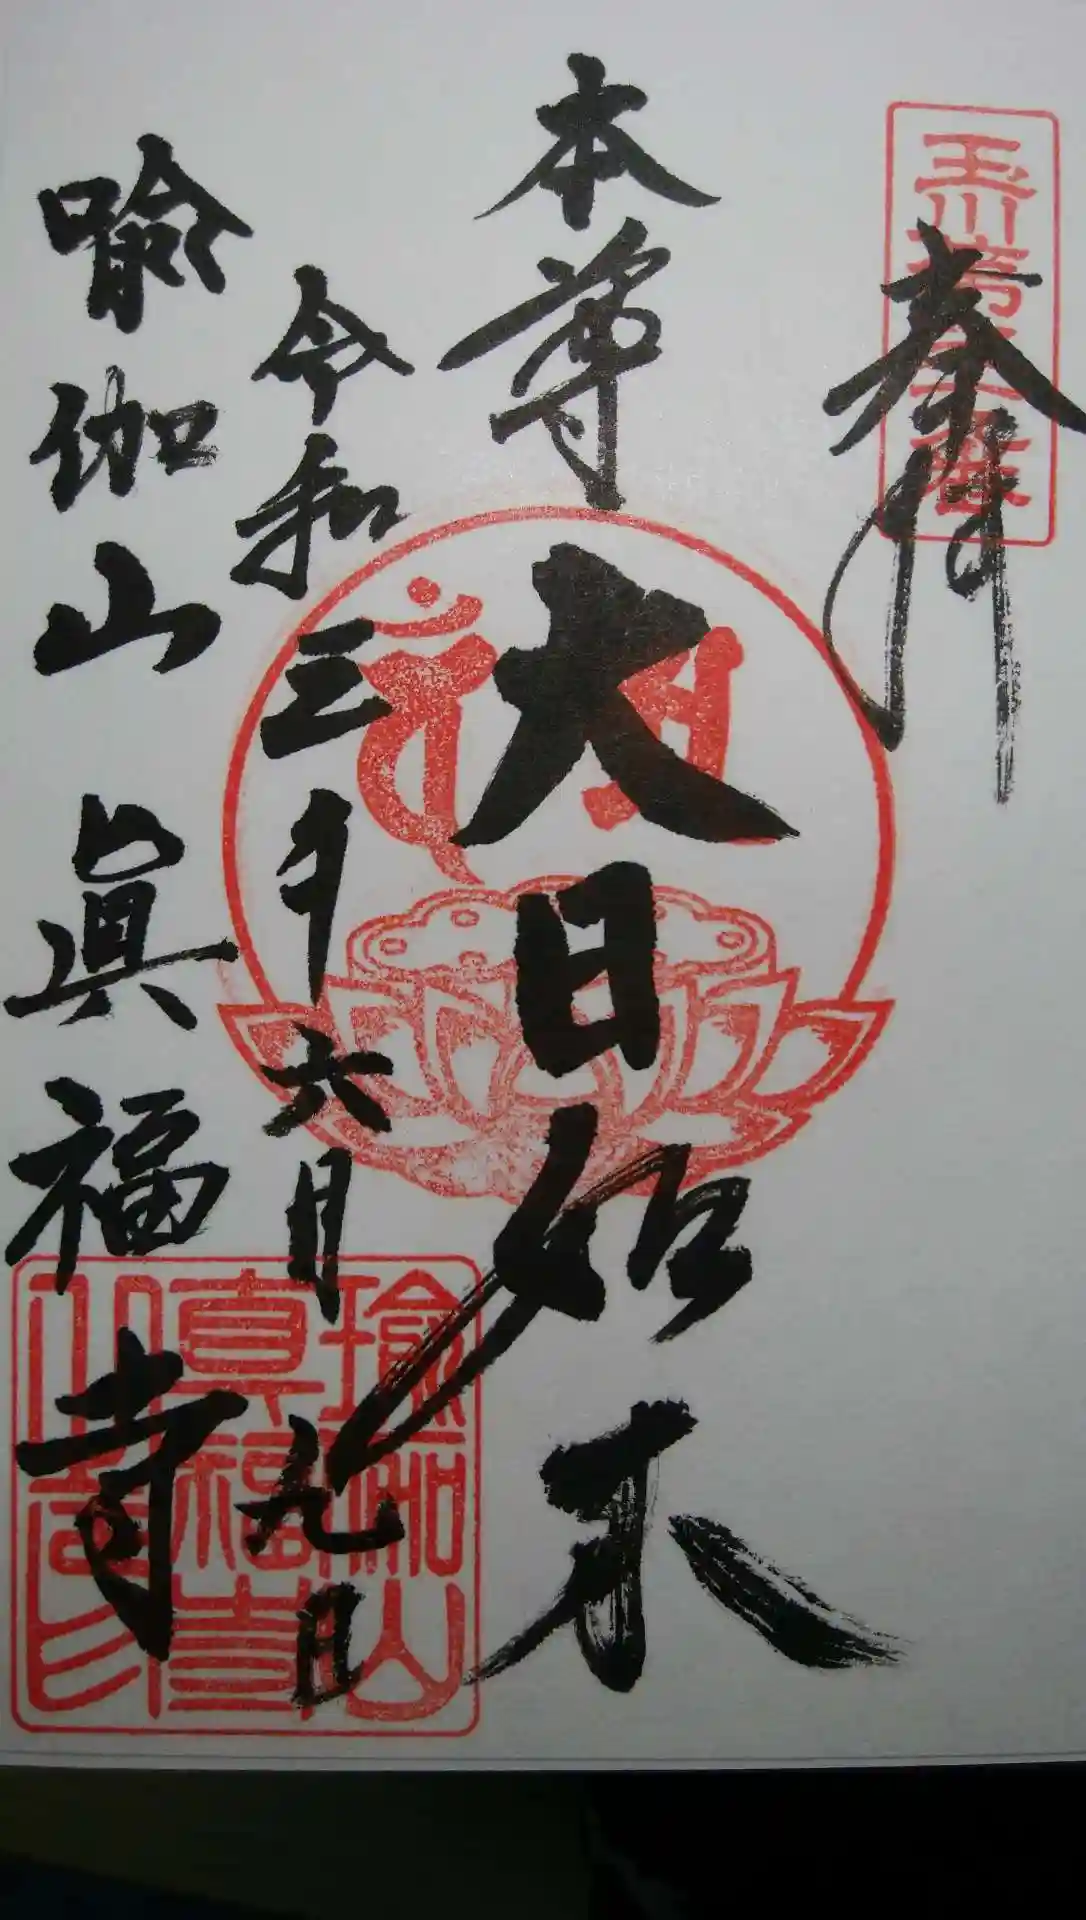 奉拝
本尊
大日如来
令和三年六月九日
喩伽山 眞福寺
瑜伽山
真福寺